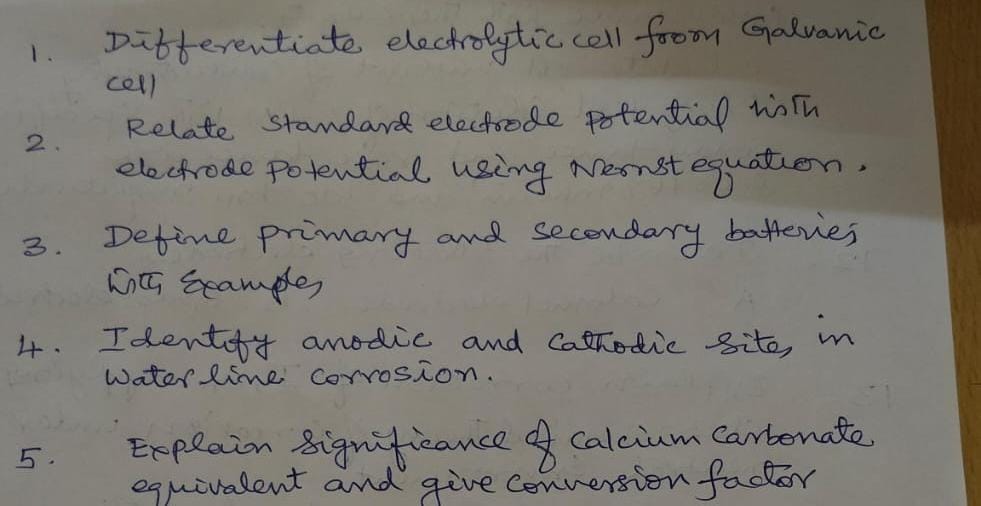 1. Differentiate electrolytic cell from Galvanic
cell
2. Relate standard electrode potential with
electrode potential using Nernst equation.
3. Define primary and secondary batteries
with Examples
4. Identify anodic and cathodic sites in
water line corrosion.
5. Explain significance of calcium carbonate
equivalent and give conversion factor